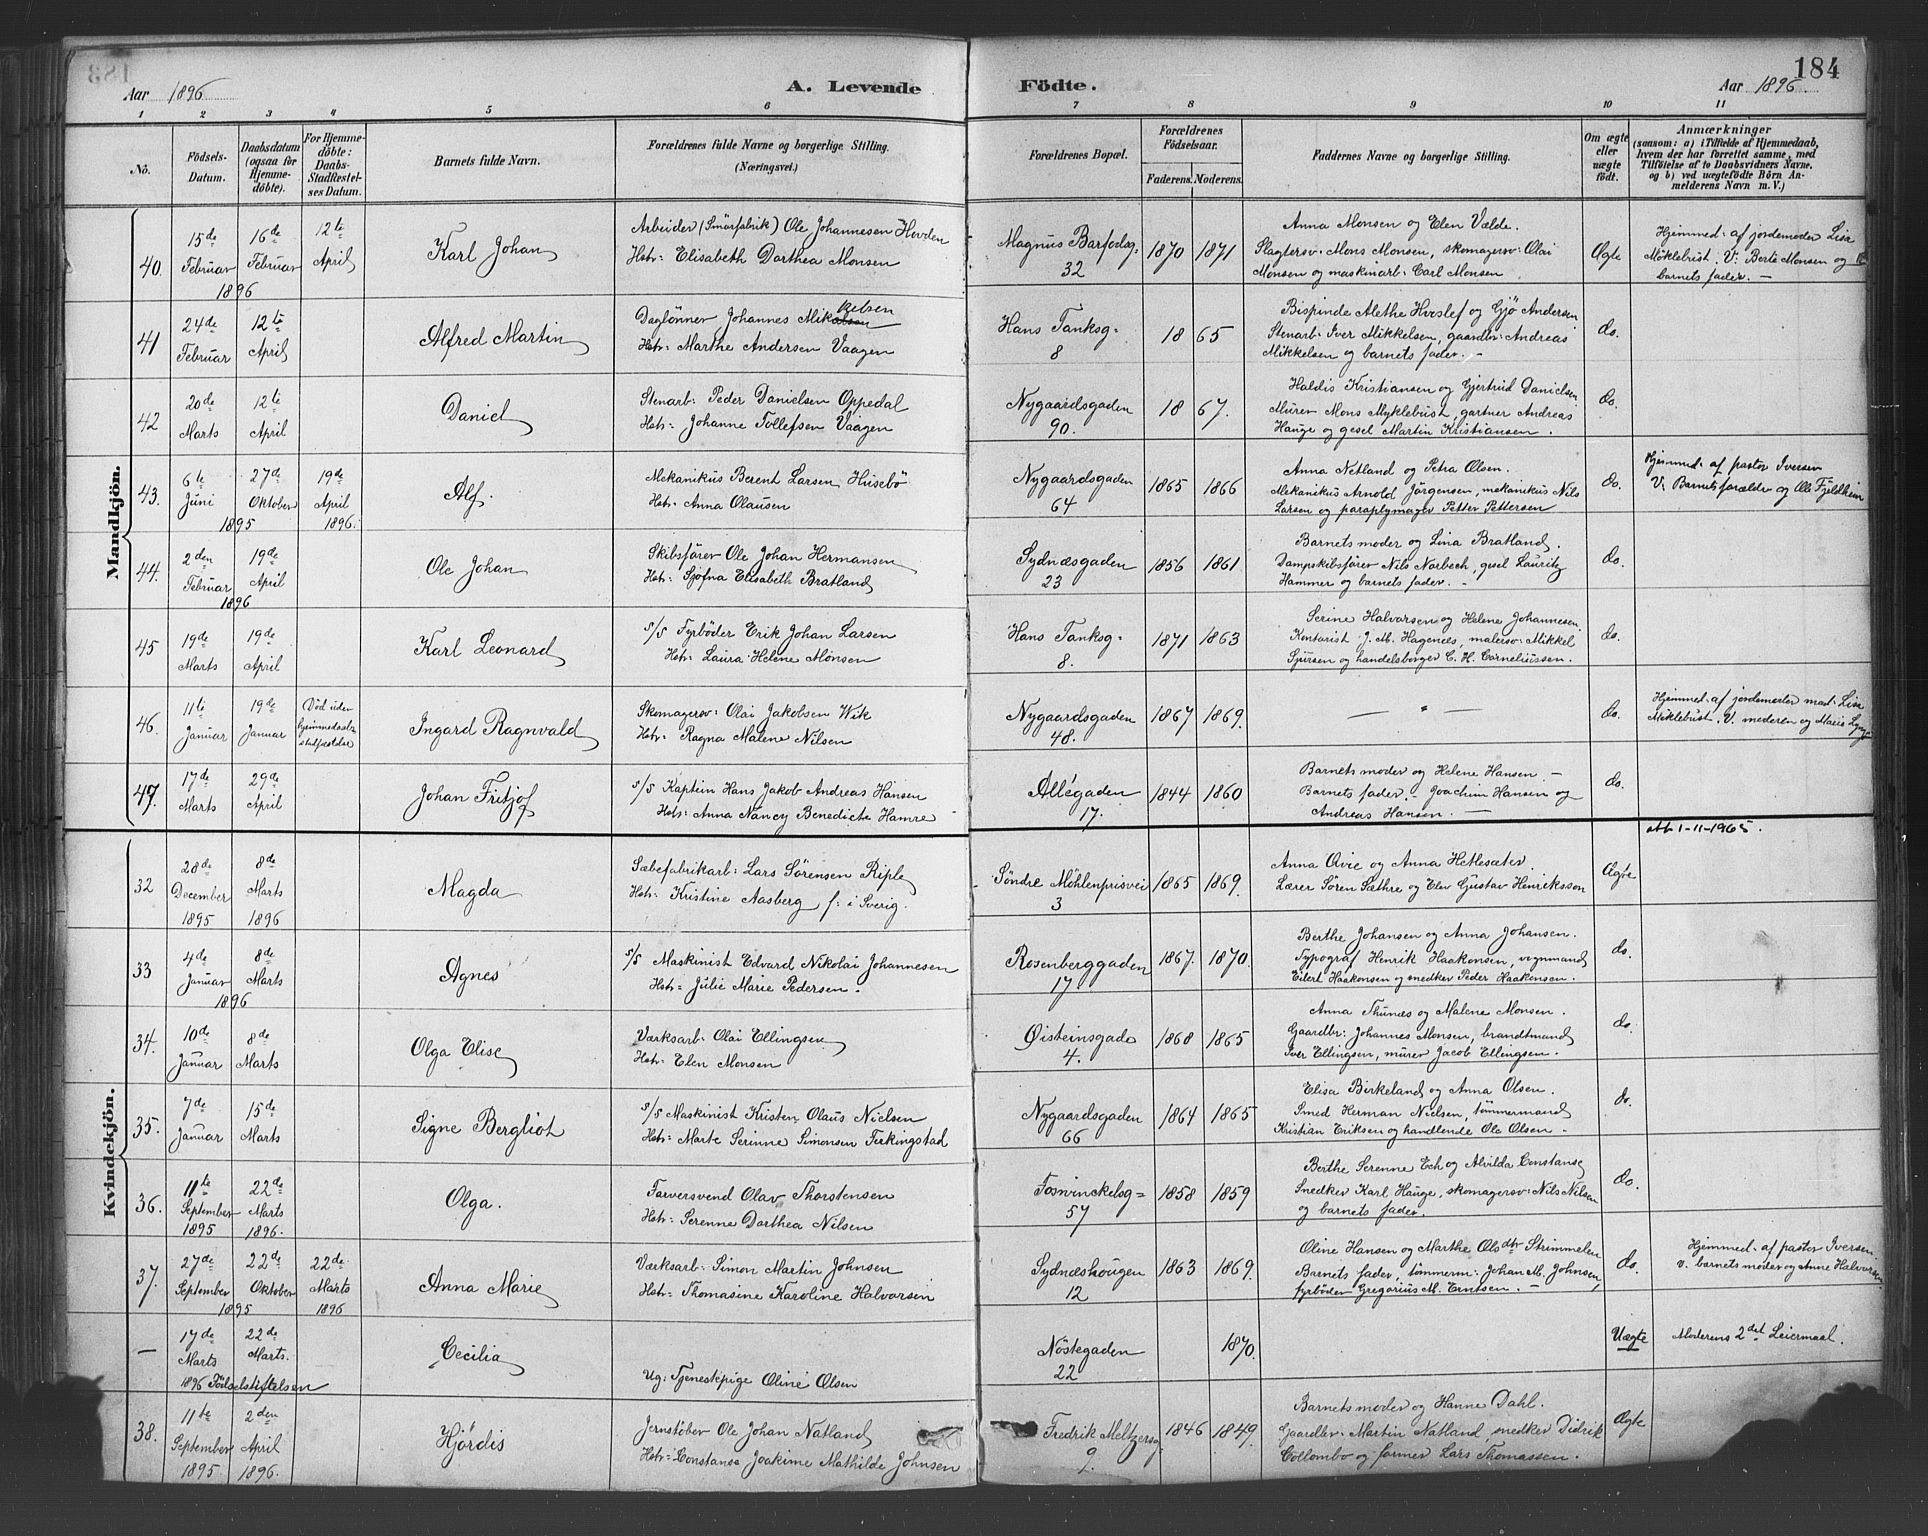 183
184
Aar 1896
A. Levende
Födte.
Aar 1896.
1 2 3 4 5 6 7 8 9 10 11
No.
Födsels-Datum.
Daabsdatum (ogsaa for Hjemme-döbte).
For Hjemme-döbte: Daabs-Stadfæstel-ses Datum.
Barnets fulde Navn.
Forældrenes fulde Navne og borgerlige Stilling.
(Næringsvei.)
Forældrenes Bopæl.
Forældrenes Födselsaar.
Faderens. Moderens.
Faddernes Navne og borgerlige Stilling.
Om ægte eller uægte födt.
Anmærkninger
(saasom: a) i Tilfælde af Hjemmedaab,
hvem der har forrettet samme, med
Tilföielse af to Daabsvidners Navne,
og b) ved uægtefödte Börn An-
melderens Navn m. V.)
Mandkjön.
40. 15de Februar 1896
16de Februar
12te April
Karl Johan
Arbeider (Smörfabrik) Ole Johannesen Hovden
Hstr: Elisabeth Dorthea Monsen
Magnus Barfodsg:
32
1870 1871
Anna Monsen og Elen Vælde.
Slagtersv: Mons Monsen, skomagersv: Olai
Monsen og maskinarb: Carl Monsen
Ægte
Hjemmed: af jordemoder Lisa
Möklebust. V. Berte Monsen og
barnets fader. —
41 24de Februar
12te April
Alfred Martin
Daglönner Johannes Mikkelsen
Hstr: Marthe Andersen Vaagen
Hans Tanksg=
8
18 65
Bispinde Alethe Hvoslef og Gjö Andersen
Stenarb: Iver Mikkelsen, gaardbr: Andreas
Mikkelsen og barnets fader. —
do.
42 20de Marts
12te April
Daniel
Stenarb: Peder Danielsen Oppedal
Hstr: Johanne Tollefsen Vaagen
Nygaardsgaden
90.
18 67.
Haldis Kristiansen og Gjertrud Danielsen
Murer Mons Myklebust, gartner Andreas
Hauge og gesel Martin Kristiansen.
do.
43. 6te Juni
27de Oktober
1895
19de April 1896.
Alf.
Mekanikus Berent Larsen Husebö
Hstr: Anna Olausen
Nygaardsgaden
64
1865 1866
Anna Netland og Petra Olsen.
Mekanikus Arnold Jörgensen, mekanikus Nils
Larsen og paraplymager Petter Pettersen
do.
Hjemmed: af pastor Iversen
V. Barnets forældre og Olle Fjeldheim
44. 2den Februar 1896
19de April
Ole Johan
Skibsförer Ole Johan Hermansen
Hstr: Sjöfna Elisabeth Bratland
Sydnæsgaden
23
1856 1861
Barnets moder og Lina Bratland.
Dampskibsförer Nils Norbech, gesel Lauritz
Hammer og barnets fader. —
do.
45 19de Marts
19de April
Karl Leonard
s/s Fyrböder Erik Johan Larsen
Hstr: Laura Helene Monsen
Hans Tanksg=
8.
1871 1863
Serine Halvorsen og Helene Johannesen.
Kontorist J. M. Hagenæs, malersv: Mikkel
Sjursen og handelsborger C. H. Corneliussen.
do.
46. 11te Januar
19de Januar
Död uden hjemmedaabs stadfæstelse
Ingard Ragnvald
Skomagersv: Olai Jakobsen Wik
Hstr: Ragna Malene Nilsen
Nygaardsgaden
48.
1867 1869.
— " —
do.
Hjemmed: af jordemoder mad: Lisa
Möklebust. V. moderen og Maris
47. 17de Marts
29de April
Johan Fritjof
s/s Kaptein Hans Jakob Andreas Hansen
Hstr: Anna Nancy Benedicte Hamre
Allégaden
17.
1844 1860
Barnets moder og Helene Hansen. —
Barnets fader. — Joachim Hansen og
Andreas Hansen. —
do.
Kvindekjön.
32 28de December 1895
8de Marts 1896
Magda
Sæbefabrikarb: Lars Sörensen Riple
Hstr: Kristine Aasberg f: i Sverig.
Söndre Möhlenprisvei
3
1865 1869.
Anna Qvie og Anna Hetlesæter.
Lærer Sören Sæthre og Elev Gustav Henriksson
Ægte
att. 1-11-1965.
33 4de Januar 1896
8de Marts
Agnes
s/s Maskinist Edvard Nikolai Johannesen
Hstr: Julie Marie Pedersen.
Rosenberggaden
17
1867. 1870.
Berthe Johansen og Anna Johansen.
Typograf Henrik Haakonsen, vognmand
Eilert Haakonsen og snedker Peder Haakonsen.
do.
34. 10de Januar
8de Marts
Olga Elise
Værksarb: Olai Ellingsen
Hstr: Elen Monsen
Øisteinsgade
4.
1868 1865
Anna Thunæs og Malene Monsen.
Gaardbr: Johannes Monsen, brandtmand
Iver Ellingsen, murer Jacob Ellingsen.
do.
35. 7de Januar
15de Marts
Signe Bergliot
s/s Maskinist Kristen Olaus Nielsen
Hstr: Marte Serinne Simonsen Ferkingstad
Nygaardsgaden
66
1864 1865
Elisa Birkeland og Anna Olsen.
Smed Herman Nielsen, tömmermand
Kristian Eriksen og handlende Ole Olsen —
do.
36. 11te September 1895
22de Marts 1896.
Olga.
Farversvend Olav Thorstensen
Hstr: Serenne Dorthea Nilsen
Fosvinckelsg=
57
1858 1859
Berthe Serenne Ech og Alvilda Constanse
Snedker Karl Hauge, skomagersv: Nils Nilsen
og barnets fader.
do.
37. 27de September
22de Oktober
1895
22de Marts 1896
Anna Marie
Værksarb: Simon Martin Johnsen
Hstr: Thomasine Karoline Halvorsen
Sydnæshougen
12
1863 1869.
Oline Hansen og Marthe Olsdtr Strimmelen
Barnets fader, tömmerm: Johan M. Johnsen,
fyrböder Gregorius M. Erntsen. —
do.
Hjemmed: af pastor Iversen.
V. barnets moder og Anne Halvorsen
— 17de Marts 1896 Födselsstiftelsen
22de Marts.
Cecilia
Ug: Tjenestepige Oline Olsen
Nöstegaden
22
1870.
Uægte
Moderens 2det Leiermaal.
38. 11te September 1895
2den April 1896.
Hjördis
Jernstöber Ole Johan Natland
Hstr: Constanse Joakime Mathilde Johnsen
Fredrik Meltzersg
9.
1846 1849.
Barnets moder og Hanne Dahl.
Gaardbr: Martin Natland, snedker Didrik
Collombo og former Lars Thomassen.
Ægte